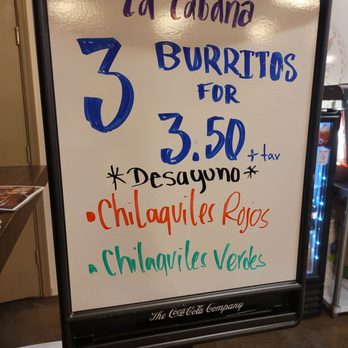 La Cabana
3 BURRITOS
FOR
3.50 + tax
*Desayuno*
• Chilaquiles Rojos
• Chilaquiles Verdes
The Coca-Cola Company